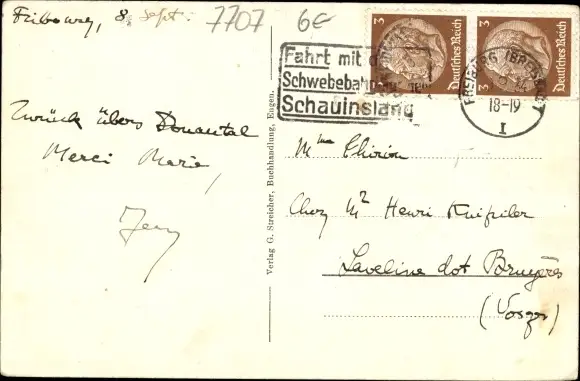 Fribourg, 8. Sept.
7707 6€
Zurück übers Donautal
Merci Marie,
Jeny
Verlag G. Streicher, Buchhandlung, Engen.
Fahrt mit der
Schwebebahn
Schauinsland
3 Deutsches Reich
3 Deutsches Reich
FREIBURG (BREISGAU)
18-19
1
Mme Chirion
Chez Mr Henri
Laveline dvt Bruyères
(Vosges)